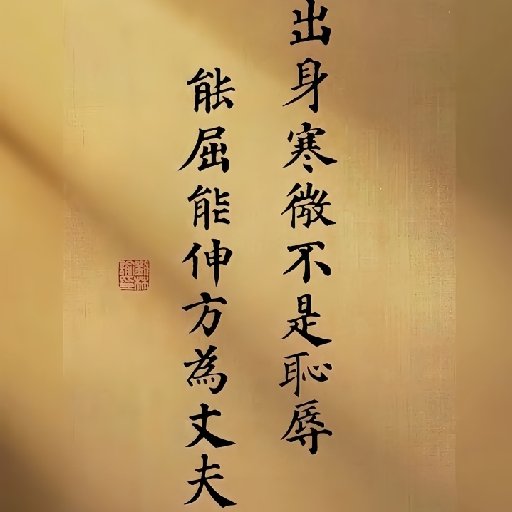 出身寒微不是恥辱
能屈能伸方為丈夫